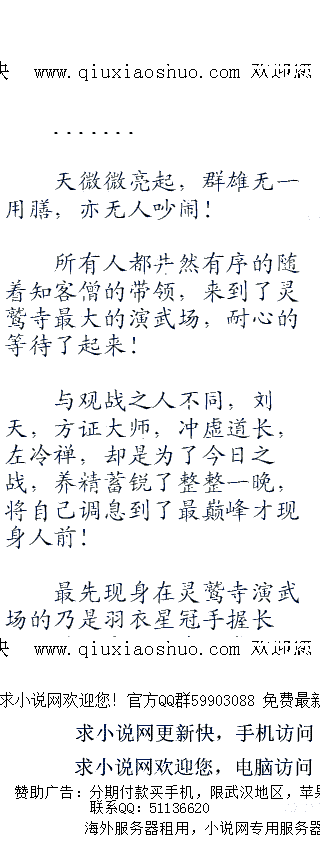 快 www.qiuxiaoshuo.com 欢迎您
.......
天微微亮起，群雄无一
用膳，亦无人吵闹！
所有人都井然有序的随
着知客僧的带领，来到了灵
鹫寺最大的演武场，耐心的
等待了起来！
与观战之人不同，刘
天，方证大师，冲虚道长，
左冷禅，却是为了今日之
战，养精蓄锐了整整一晚，
将自己调息到了最巅峰才现
身人前！
最先现身在灵鹫寺演武
场的乃是羽衣星冠手握长
快 www.qiuxiaoshuo.com 欢迎您
求小说网欢迎您！官方QQ群59903088 免费最新
求小说网更新快，手机访问
求小说网欢迎您，电脑访问
赞助广告：分期付款买手机，限武汉地区，苹果
联系QQ：51136620
海外服务器租用，小说网专用服务器